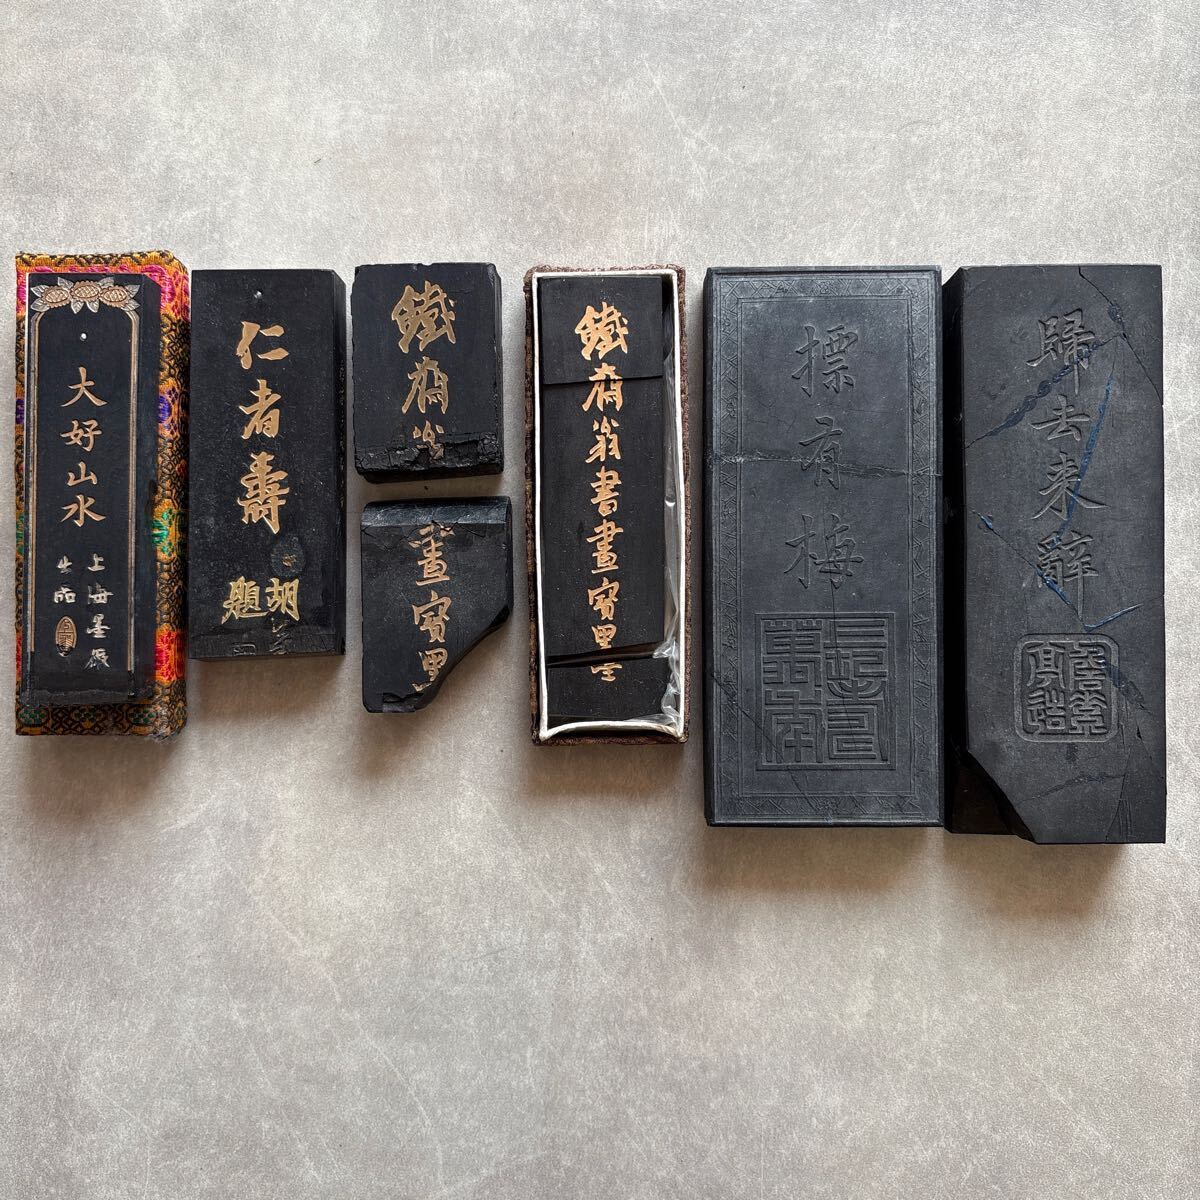 大好山水
上海墨厰
出品
仁者壽
胡
題
鐵齋翁
畫寶墨
鐵齋翁書畫寶墨
摽有梅
歸去来辭